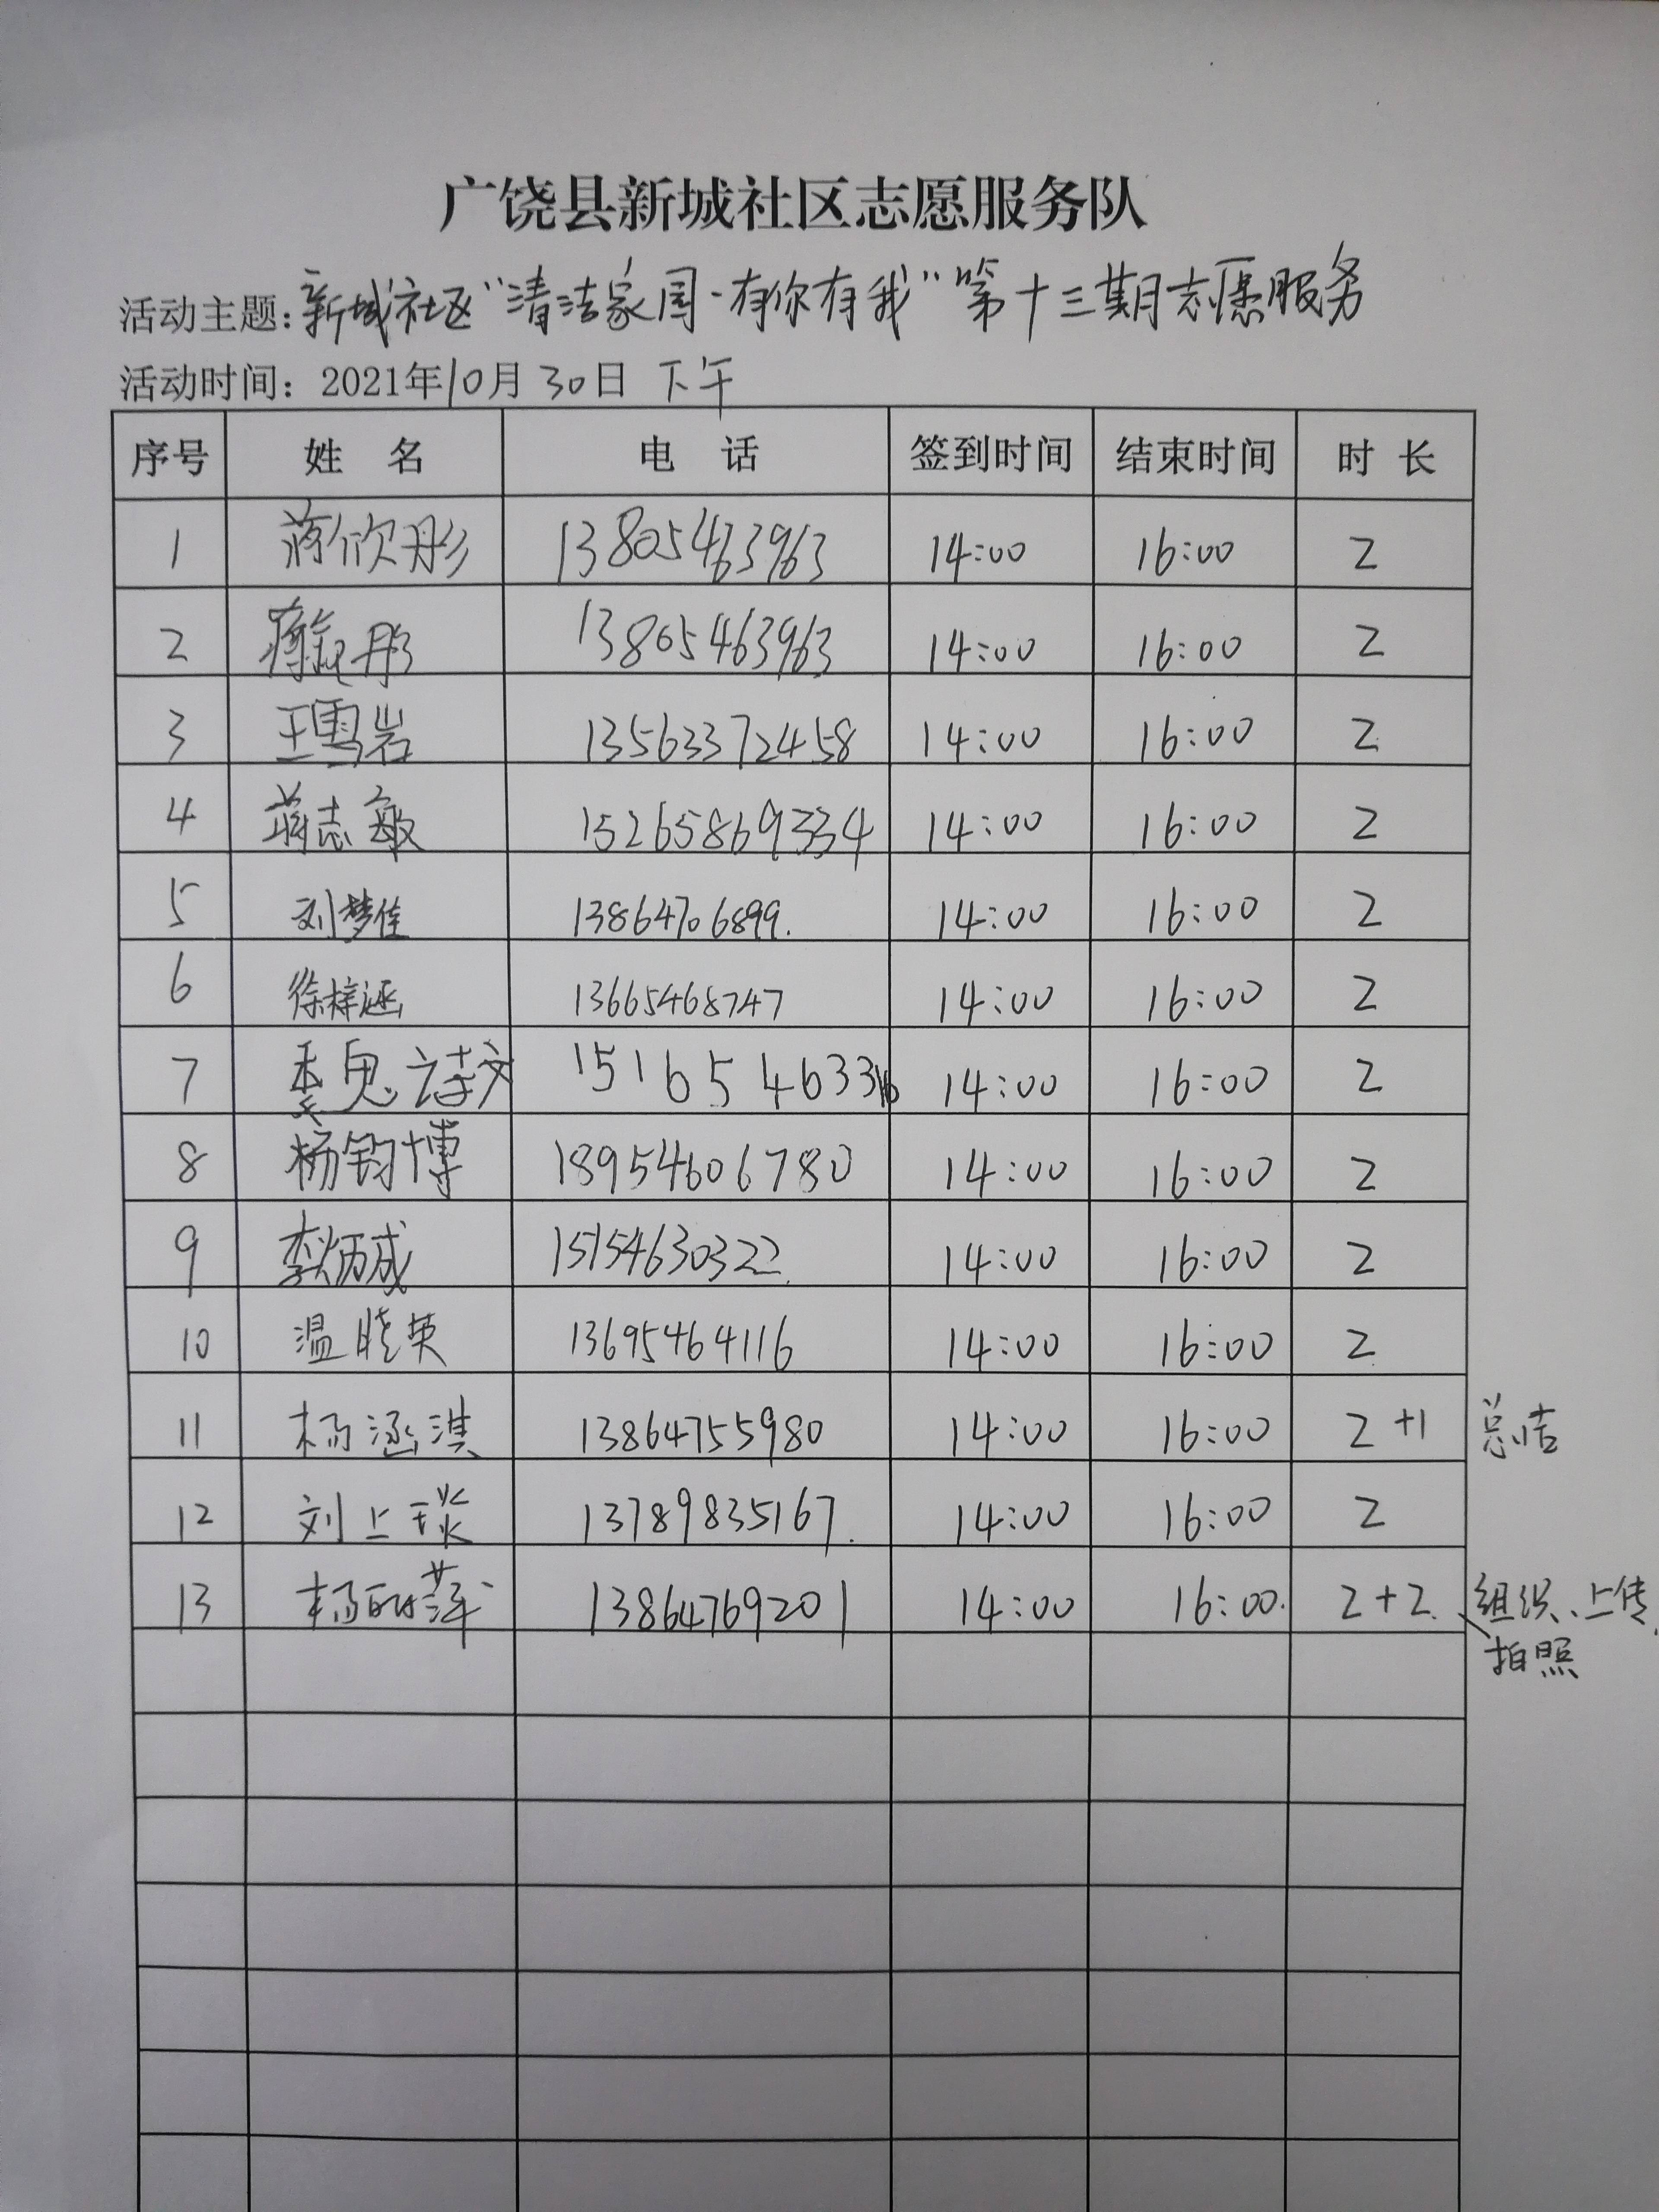 广饶县新城社区志愿服务队
活动主题:新城社区"清洁家园·有你有我"第十三期志愿服务
活动时间:2021年10月30日 下午
序号 姓名 电话 签到时间 结束时间 时长
1 蒋欣彤 13805463963 14:00 16:00 2
2 13805463963 14:00 16:00 2
3 王雪岩 13563372458 14:00 16:00 2
4 蒋志敏 15265869334 14:00 16:00 2
5 刘梦佳 13864706899. 14:00 16:00 2
6 徐梓涵 13665468747 14:00 16:00 2
7 诗文 14:00 16:00 2
8 杨钧博 18954606780 14:00 16:00 2
9 李炳成 15154630322 14:00 16:00 2
10 温晓英 13695464116 14:00 16:00 2
11 杨涵淇 13864755980 14:00 16:00 2+1 总结
12 刘上琰 13789835167. 14:00 16:00 2
13 杨丽萍 13864769201 14:00 16:00. 2+2. 组织、上传
拍照